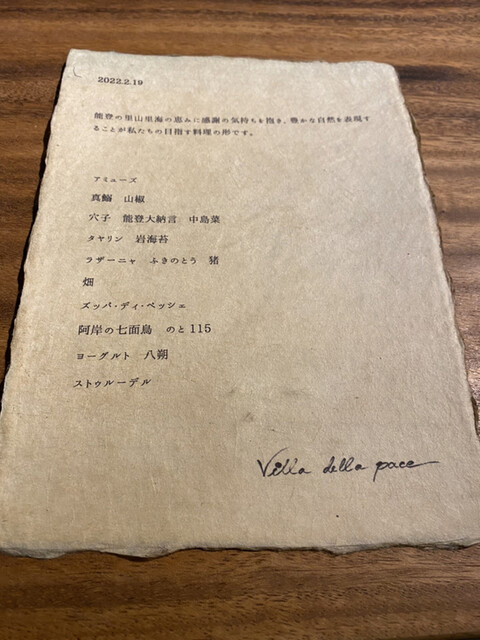 2022.2.19
能登の里山里海の恵みに感謝の気持ちを抱き、豊かな自然を表現す
ることが私たちの目指す料理の形です。
アミューズ
真鰯 山椒
穴子 能登大納言 中島菜
タヤリン 岩海苔
ラザーニャ ふきのとう 猪
畑
ズッパ・ディ・ペッシェ
阿岸の七面鳥 のと115
ヨーグルト 八朔
ストゥルーデル
Villa della pace